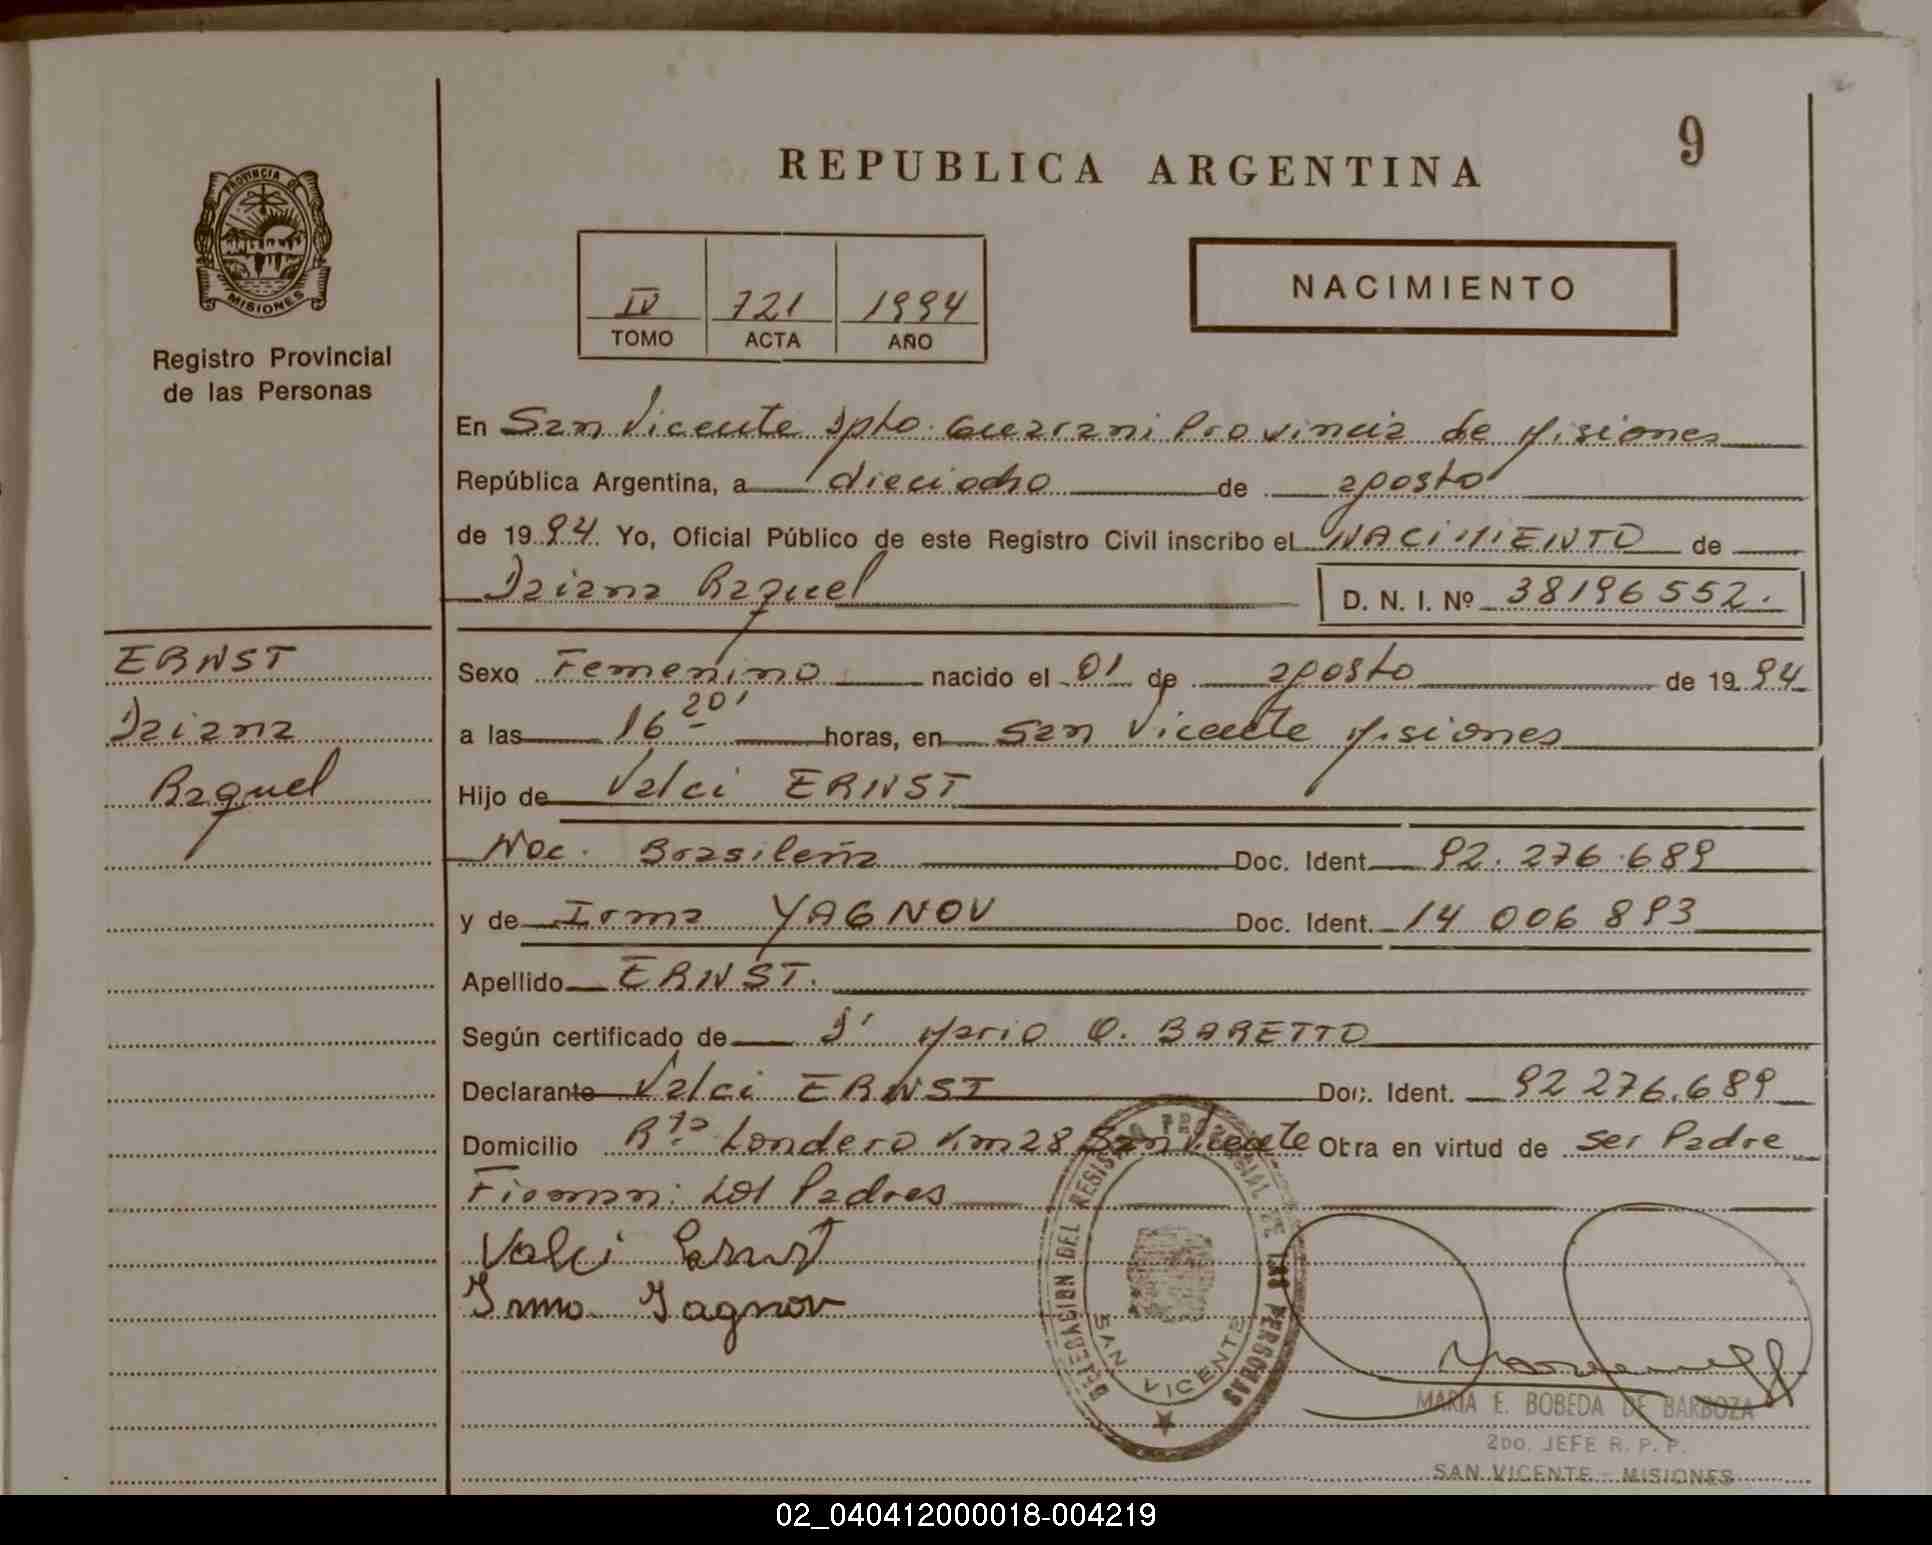 9
REPUBLICA ARGENTINA
PROVINCIA DE
MISIONES
Registro Provincial
de las Personas
IV 721 1994
TOMO ACTA AÑO
NACIMIENTO
En San Vicente Dpto. Guarani Provincia de Misiones
República Argentina, a dieciocho de agosto
de 1994. Yo, Oficial Público de este Registro Civil inscribo el NACIMIENTO de
Daiana Raquel D. N. I. Nº 38196552.
ERNST
Daiana
Raquel
Sexo Femenino nacido el 01 de agosto de 1994
a las 16 20' horas, en San Vicente Misiones
Hijo de Valci ERNST
Nac. Brasileña Doc. Ident. 92.276.689
y de Irma YAGNOV Doc. Ident. 14 006 893
Apellido ERNST.
Según certificado de D' Mario O. BARETTO
Declarante Valci ERNST Doc. Ident. 92 276.689
Domicilio Rta Londero Km 28 San Vicente Obra en virtud de ser Padre
Firman: Los Padres
Valci Ernst
Irma Yagnov
DELEGACION DEL REGISTRO PROVINCIAL DE LAS PERSONAS
SAN VICENTE
MARIA E. BOBEDA DE BARBOZA
2DO. JEFE R. P. P.
SAN VICENTE - MISIONES
02_040412000018-004219